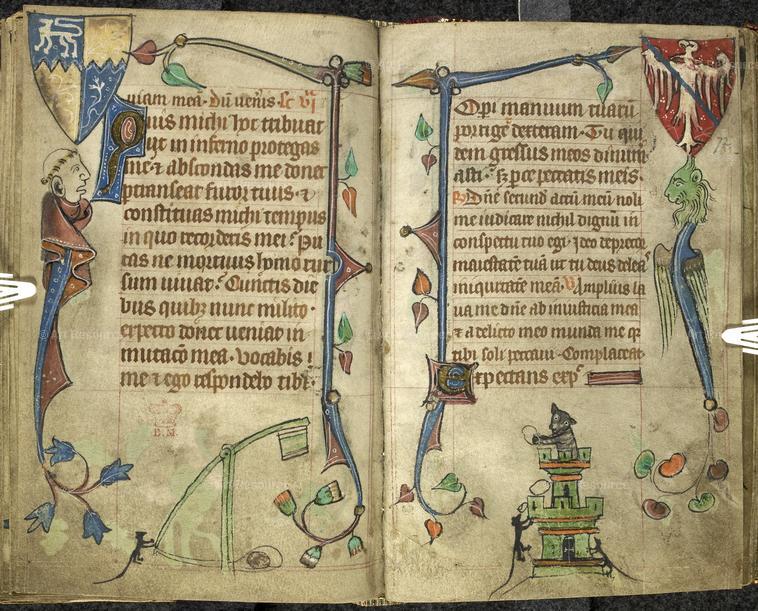 uiam mea. Dn̄ uenis sc vi
Quis michi hoc tribuat
ut in inferno protegas
me. & abscondas me donec
ptranseat furor tuus. &
constituas michi tempus
in quo recorderis mei. Pu
tas ne mortuus homo rur
sum uiuat. Cunctis die
bus quibz nunc milito.
expecto donec ueniat in
mutacō mea. Vocabis
me & ego respondebo tibi.
B. M.
Opi manuum tuarū
portige dexteram. Tu qui
dem gressus meos dinum
asti. sz pce peccatis meis.
Dn̄e secund actū meū noli
me iudicare nichil dignū in
conspectu tuo egi. Ideo deprecor
maiestatē tuā ut tu deus deleas
iniquitatē meā. V Amplius la
ua me dn̄e ab iniusticia mea
& a delicto meo munda me qr
tibi soli peccaui. Complaceat
Expectans exp̄